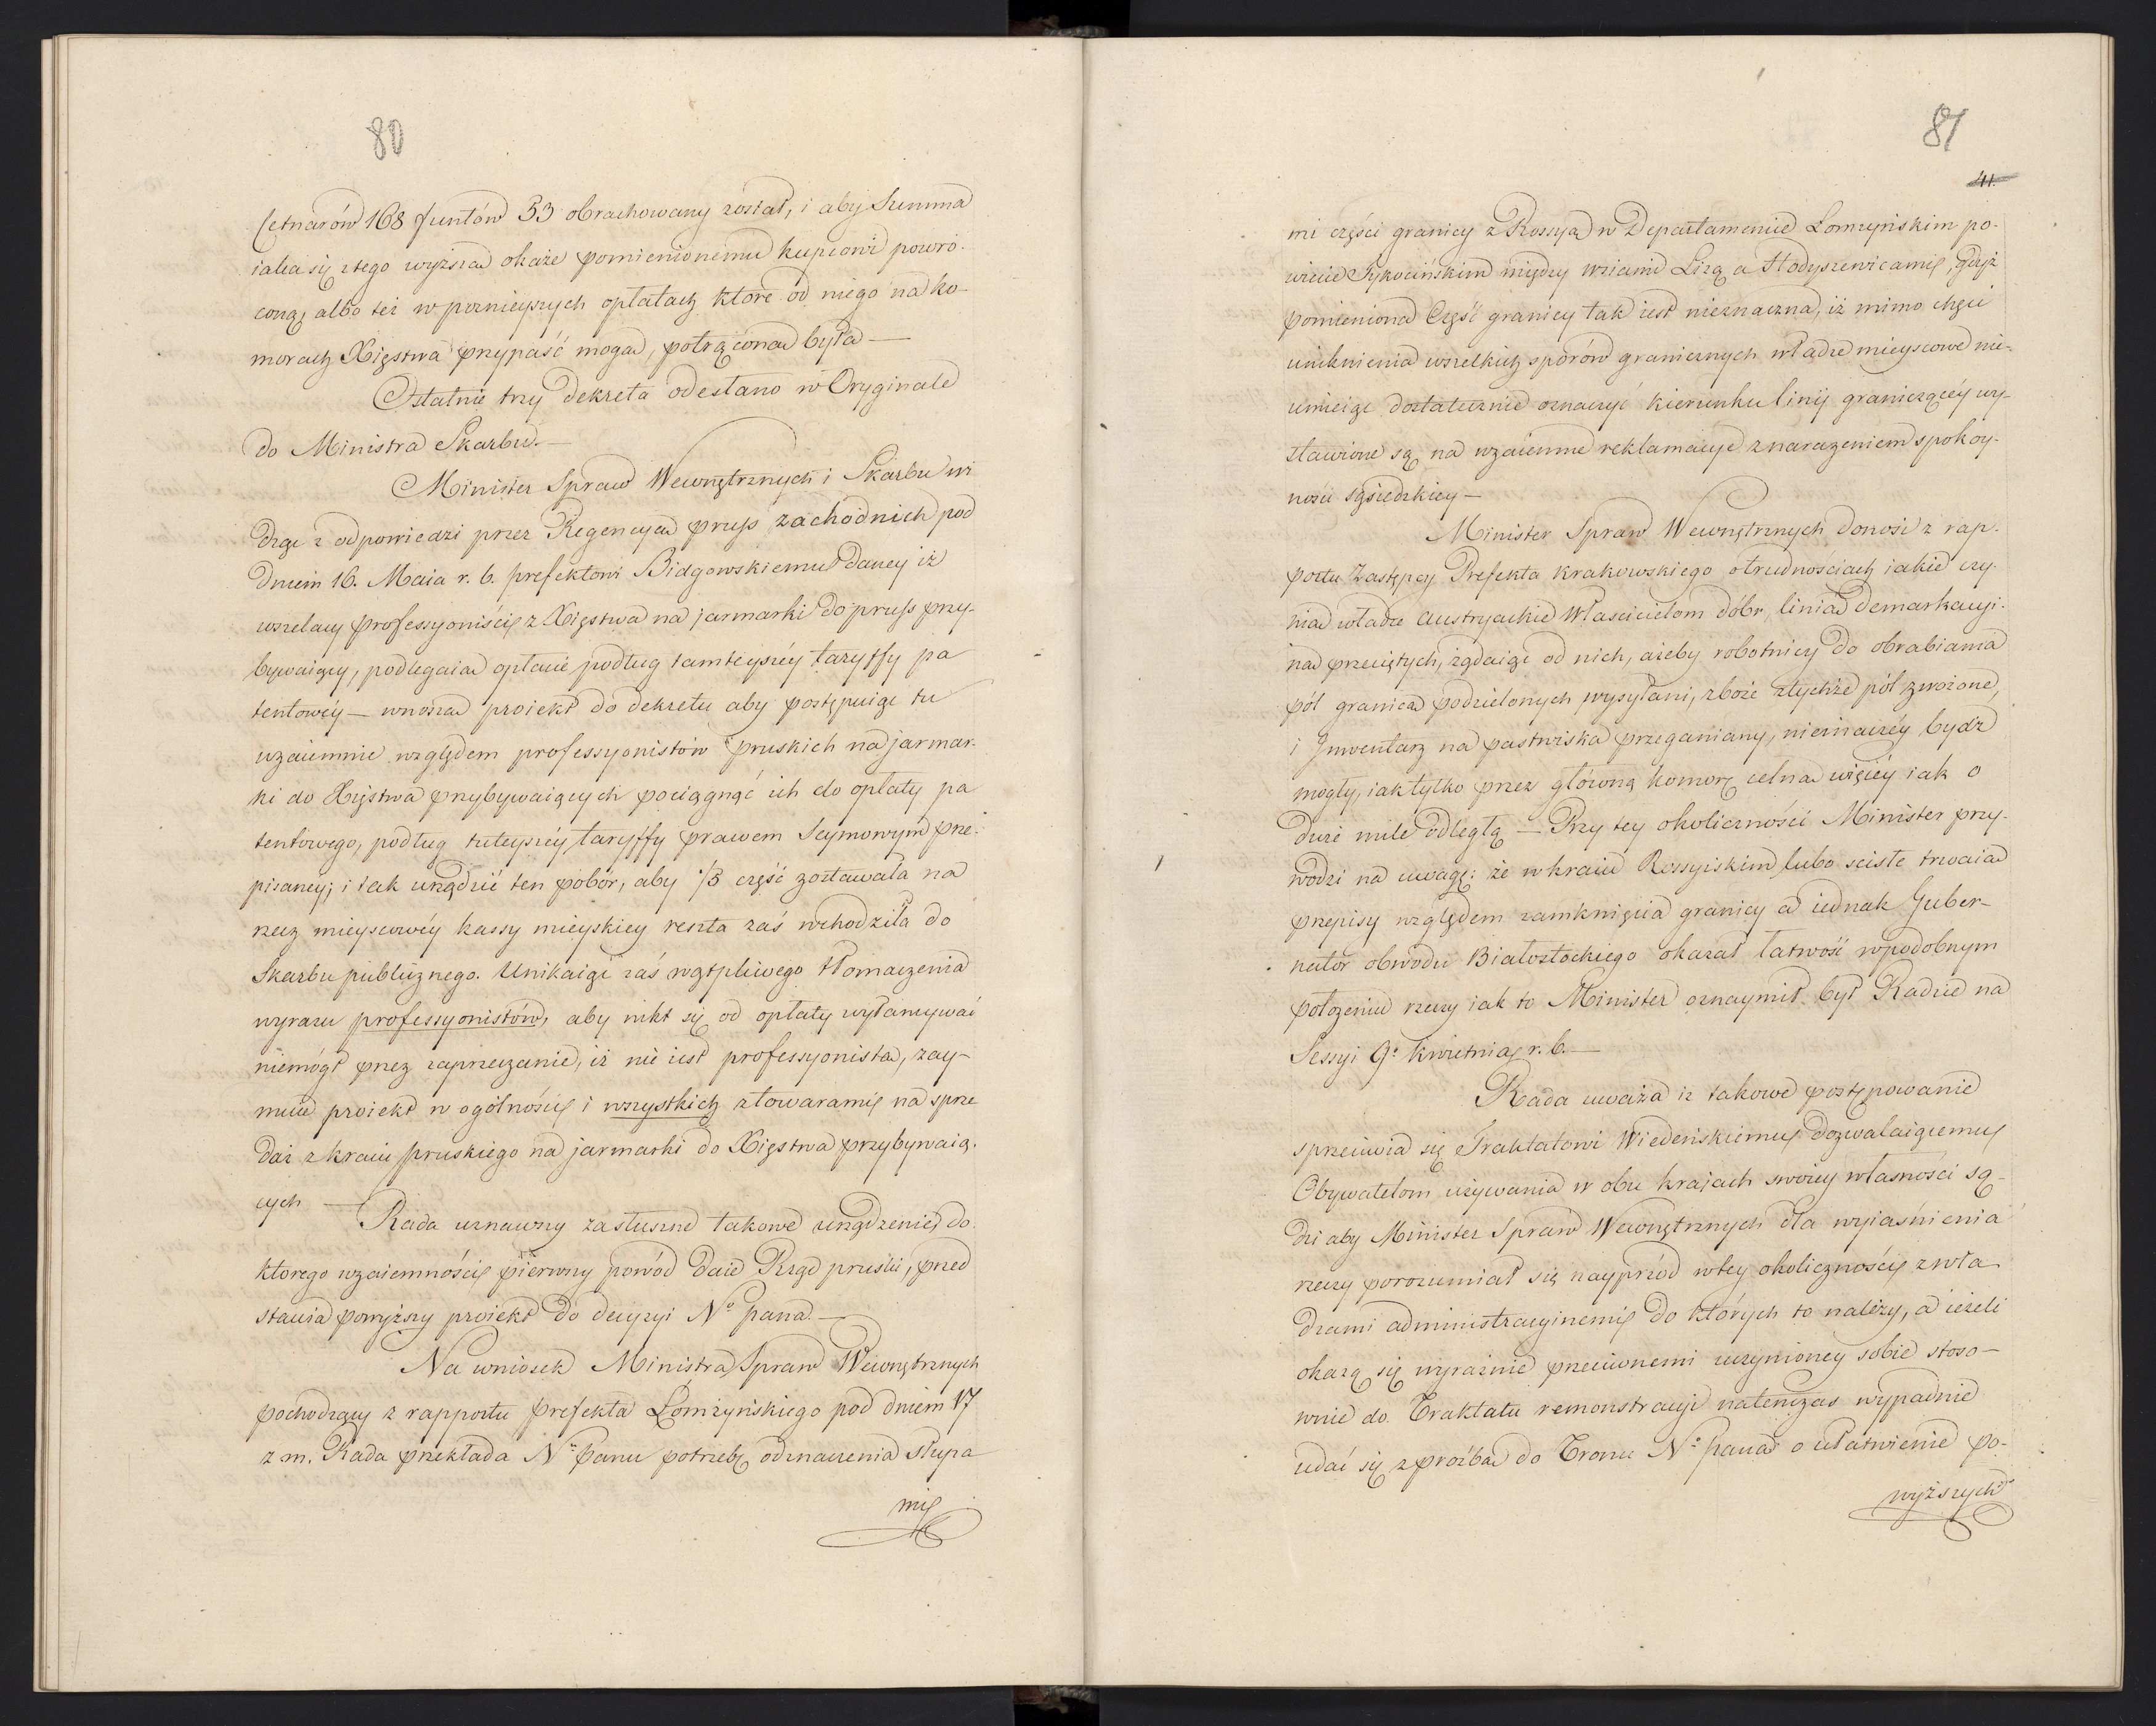 80
Cetnarów 168 funtów 53 obrachowany został, i aby Summa
iaka się z tego wyższa okaże pomienionemu kupcowi powró-
coną, albo też w poznieyszych opłatach które od niego na ko-
morach Xięstwa przypaść mogą, potrącona była —
Ostatnie trzy Dekreta odesłano w Oryginale
do Ministra Skarbu. —
Minister Spraw Wewnętrznych i Skarbu wi
dząc z odpowiedzi przez Regencyą pruss zachodnich pod
dniem 16. Maia r. b. prefektowi Bidgowskiemu daney iż
wszelacy professyoniści z Xięstwa na jarmarki do pruss przy-
bywaiący, podlegaią opłacie podług tamteyszéy taryffy pa
tentowéy — wnoszą proiekt do dekretu aby postępuiąc tu
wzaiemnie względem professyonistów pruskich na jarmar-
ki do Xięstwa przybywaiących pociągnąć ich do opłaty pa
tentowego, podług tuteyszéy taryffy prawem Seymowym prze-
pisaney; i tak urządzić ten pobór, aby 1/3 część zostawała na
rzecz mieyscowéy kassy mieyskiey reszta zaś wchodziła do
Skarbu publicznego. Unikaiąc zaś wątpliwego tłomaczenia
wyrazu professyonistów, aby nikt się od opłaty wyłamywać
niemógł przez zaprzeczanie, iż nie iest professyonistą, zay-
muie proiekt w ogólności i wszystkich z towarami na sprze
daż z kraiu pruskiego na jarmarki do Xięstwa przybywaią-
cych —
Rada uznawszy za słuszne takowe urządzenie, do
ktorego wzaiemności pierwszy powód daie Rząd pruski, przed
stawia powyższy proiekt do decyzyi No pana. —
Na wniosek Ministra Spraw Wewnętrznych
pochodzący z rapportu Prefekta Łomżyńskiego pod dniem 17
z m. Rada przekłada No panu potrzebę odznaczenia słupa
mi
81
41.
mi części granicy z Rossyą w Departamencie Lomżyńskim po-
wiecie Tykocińskim między wsiami Lizą a Hodyszewicami, gdyż
pomieniona Część granicy tak iest nieznaczna, iż mimo chęci
uniknienia wszelkich sporów granicznych władze mieyscowe nie-
umieiąc dostatecznie oznaczyć kierunku linij graniczącéy wy-
stawione są na wzaiemne reklamacye z narażeniem spokoy-
ności sąsiedzkiey —
Minister Spraw Wewnętrznych donosi z rap-
portu Zastępcy Prefekta krakowskiego o trudnościach iakie czy-
nią władze Austryackie Właścicielom dóbr, linią demarkacyi-
ną przeciętych, żądaiąc od nich, ażeby robotnicy do obrabiania
pól granicą podzielonych wysyłani, zboże z tychże pól zwożone,
i Inwentarz na pastwiska przeganiany, nieinaczéy bydź
mogły, iak tylko przez główną komorę celną więcéy iak o
dwie mile odległą — Przy tey okoliczności Minister przy-
wodzi na uwagę: że w kraiu Rossyiskim lubo sciśle trwaią
przepisy względem zamknięcia granicy a iednak Guber-
nator obwodu Białostockiego okazał łatwość w podobnym
położeniu rzeczy iak to Minister oznaymił był Radzie na
Sessyi 9o kwietnia r. b. —
Rada uważa iż takowe postępowanie
sprzeciwia się Traktatowi Wiedeńskiemu dozwalaiącemu
Obywatelom używania w obu krajach swoiey własności są-
dzi aby Minister Spraw Wewnętrznych dla wyiaśnienia
rzeczy porozumiał się nayprzód w tey okoliczności z wła
dzami administracyinemi do których to należy, a ieżeli
okażą się wyraźnie przeciwnemi uczynioney sobie stoso-
wnie do Traktatu remonstracyi natenczas wypadnie
udać się z prośbą do Tronu No Pana o ułatwienie po-
wyższych